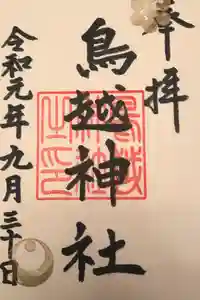 奉拝
鳥越神社
令和元年九月三十日